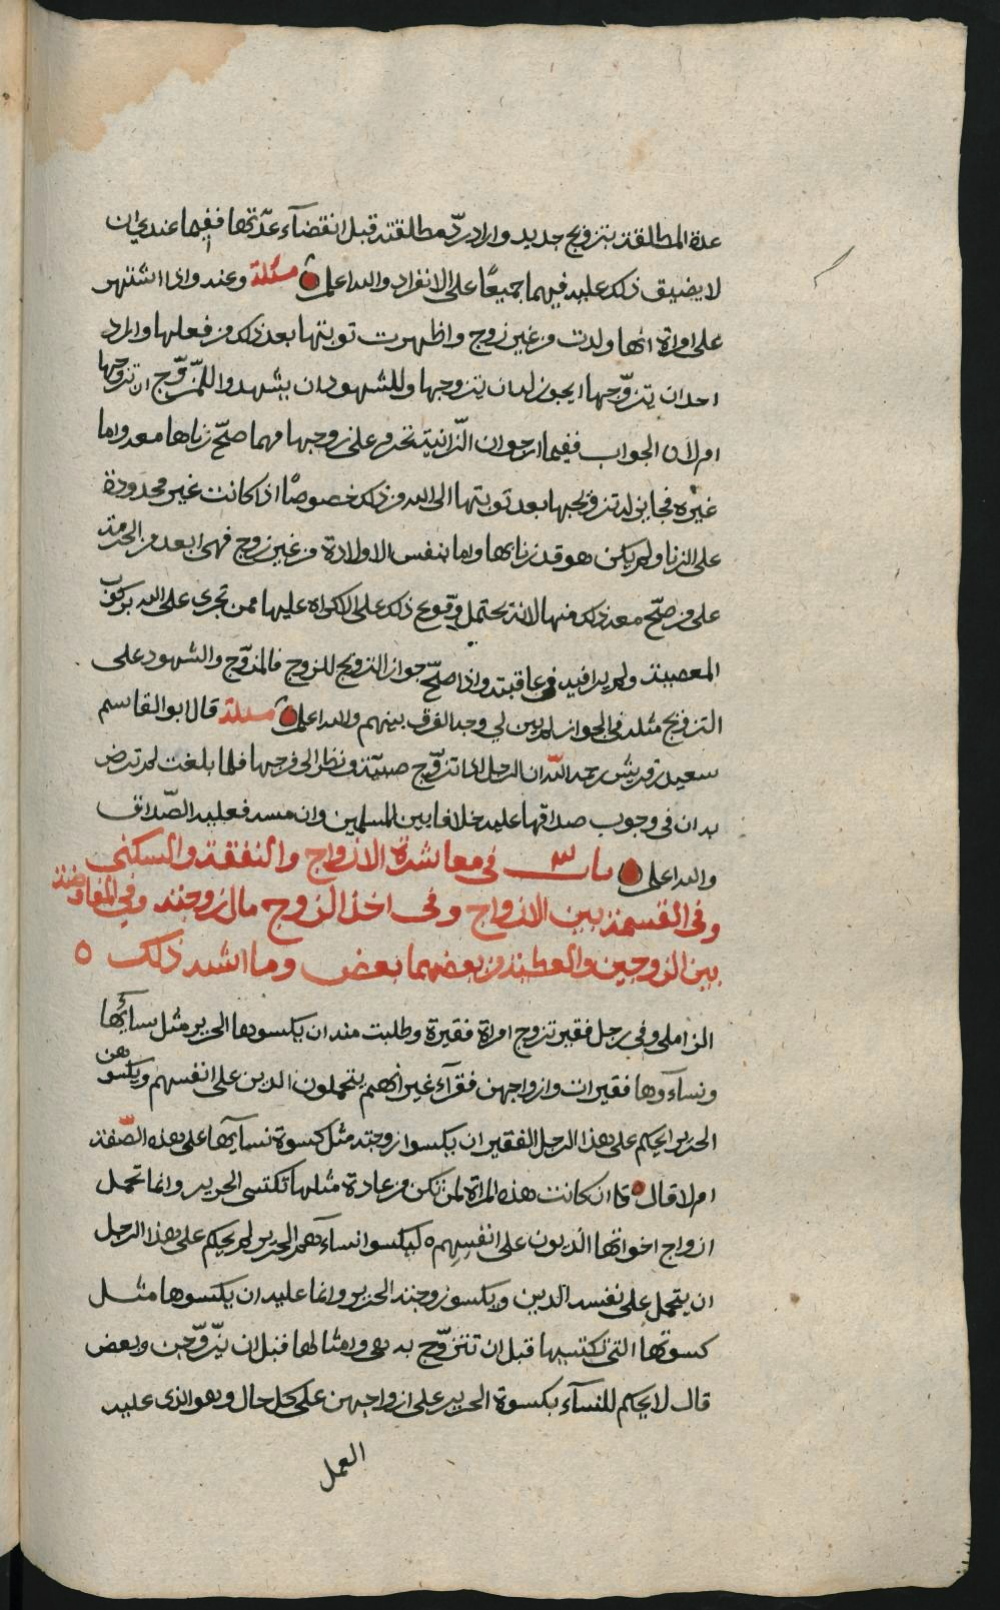 عدة المطلقة بتزويج جديد واراد ردّ مطلقته قبل انقضآء عدّتها ففيما عندي ان
لا يضيق ذلك عليه فيهما جميعًا على الانفراد والله اعلم مسئلة وعنه واذا اشتهر
على امراة انها ولدت من غير زوج واظهرت توبتها بعد ذلك من فعلها واراد
احد ان يتزوّجها ايجوز له ان يتزوجها وللشهود ان يشهدوا للمزوّج ان تزوجها
ام لا ن الجواب ففيما ارجو ان الزّانية تحرم على زوجها مهما صحّ زناها معه واما
غيره فجايز له تزويجها بعد توبتها الى الله من ذلك خصوصًا اذا كانت غير محدودة
على الزنا ولم يكن هو قد زنا بها واما بنفس الاولادة من غير زوج فهي ابعد من الحرمة
على من صحّ معه ذلك منها لانه يحتمل وقوع ذلك على الاكراه عليها ممن تجرى على الله بركوب
المعصية ولم يراقبه في عاقبته واذا صلحّ جواز التزويج للزوج فالمزوّج والشهود على
التزويج مثله في الجواز لم يبن لي وجه الفرق بينهم والله اعلم مسئلة قال ابو القاسم
سعيد بن قريش رحمه الله ان الرجل اذا تزوّج صبيّة ونظر الى فرجها فلما بلغت لم ترض
به ان في وجوب صداقها عليه خلافا بين المسلمين وان مسه فعليه الصّداق
والله اعلم باب ٣ في معاشرة الازواج والنفقة والسكنى
وفي القسمة بين الازواج وفي اخذ الزوج مال زوجته وفي المفاوضة
بين الزوجين والعطية من بعضهما بعض وما اشبه ذلك ٥
الزاملي وفي رجل فقير تزوج امراة فقيرة وطلبت منه ان يكسوها الحرير مثل نسائها
ونسآءوها فقيرات وازواجهن فقرآء غير انهم يتحملون الدين على انفسهم ويكسوهن
الحرير ايحكم على هذا الرجل الفقير ان يكسوا زوجته مثل كسوة نسآيها على هذه الصّفة
ام لا قال ان كانت هذه المراة لم تكن من عادة مثلها تكتسي الحرير وانما تحمل
ازواج اخواتها الديون على انفسهم ليكسوا نسآءهم الحرير لم يحكم على هذا الرجل
ان يتحمل على نفسه الدين ويكسو زوجته الحرير وانما عليه ان يكسوها مثل
كسوتها التي تكتسيها قبل ان تتزوّج به هي وامثالها قبل ان يتزوّجن وبعض
قال لا يحكم للنسآء بكسوة الحرير على ازواجهن على كل حال وهو الذى عليه
العمل